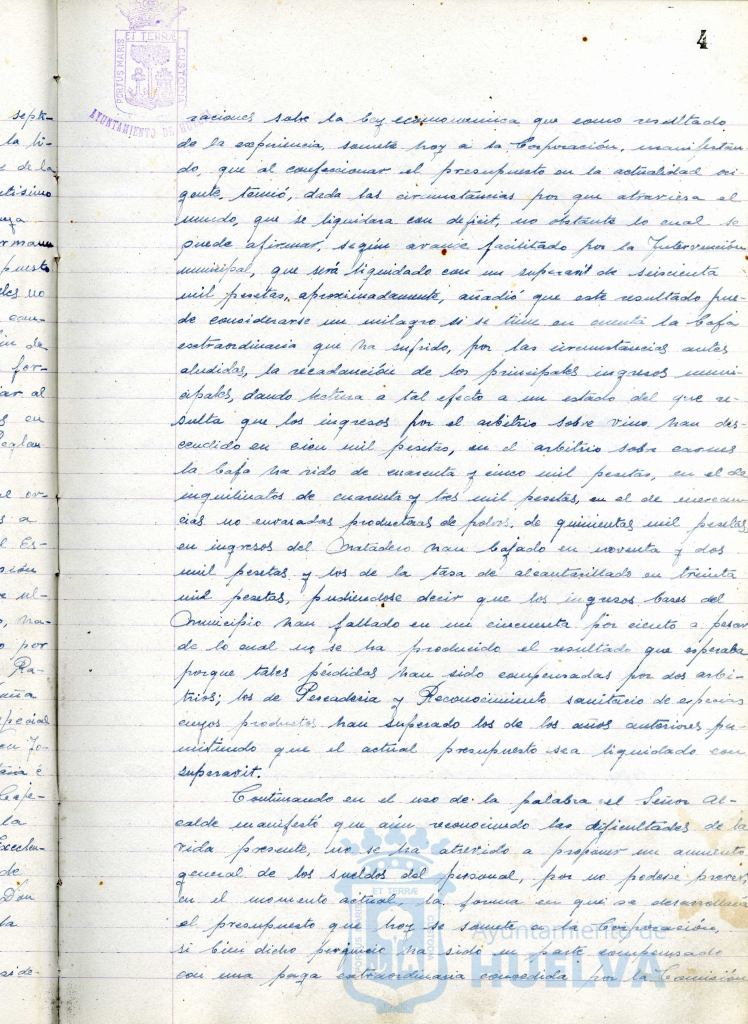 4
PORTUS MARIS ET TERRÆ CUSTODIA
AYUNTAMIENTO DE HUELVA
raciones sobre la Ley economica que como resultado
de la experiencia, somete hoy a la Corporación, manifestan-
do, que al confeccionar el presupuesto en la actualidad vi-
gente, temió, dada las circunstancias por que atraviesa el
mundo, que se liquidara con deficit, no obstante lo cual se
puede afirmar, según avance facilitado por la Intervención
municipal, que será liquidado con un superavit de seiscienta
mil pesetas, aproximadamente, añadió que este resultado pue-
de considerarse un milagro si se tiene en cuenta la baja
extraordinaria que ha sufrido, por las circunstancias antes
aludidas, la recaudanción de los principales ingresos muni-
cipales, dando lectura a tal efecto a un estado del que re-
sulta que los ingresos por el arbitrio sobre vino han des-
cendido en cien mil pesetas, en el arbitrio sobre carnes
la baja ha sido de cuarenta y cinco mil pesetas, en el de
inquilinatos de cuarenta y tres mil pesetas, en el de mercan-
cias no envasadas productoras de polvo, de quinientas mil pesetas
en ingresos del Matadero han bajado en noventa y dos
mil pesetas y los de la tasa de alcantarillado en treinta
mil pesetas, pudiendose decir que los ingresos bases del
Municipio han fallado en un cincuenta por ciento a pesar
de lo cual no se ha producido el resultado que esperaba
porque tales pérdidas han sido compensadas por dos arbi-
trios; los de Pescaderia y Reconocimiento sanitario de especias
cuyos productos han superado los de los años anteriores per-
mitiendo que el actual presupuesto sea liquidado con
superavit.
Continuando en el uso de la palabra el Señor Al-
calde manifestó que aún reconociendo las dificultades de la
vida presente, no se ha atrevido a proponer un aumento
general de los sueldos del personal, por no poderse prever,
en el momento actual, la forma en que se desarrollará
el presupuesto que hoy se somete a la Corporación,
si bien dicho perjuicio ha sido en parte compensado
con una paga extraordinaria concedida por la Comisión
Ayuntamiento de
HUELVA